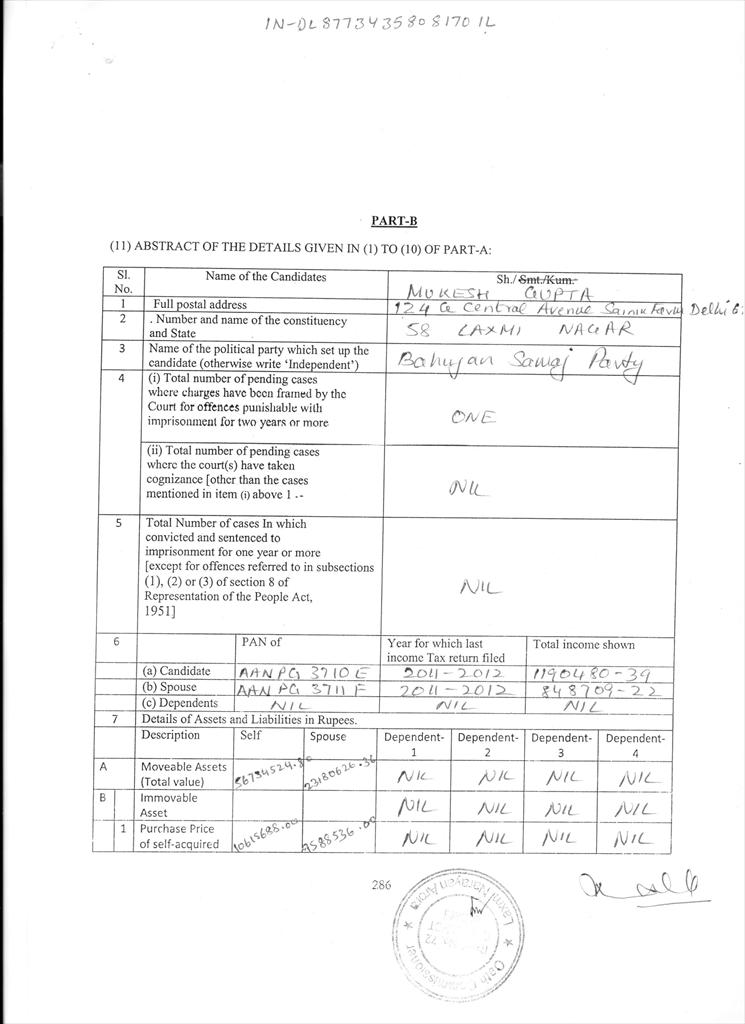 IN-DL87734358081701L
PART-B
(11) ABSTRACT OF THE DETAILS GIVEN IN (1) TO (10) OF PART-A:
Sl. No. Name of the Candidates Sh./ Smt./Kum.
MUKESH GUPTA
1 Full postal address 124 Central Avenue Delhi
2 . Number and name of the constituency and State 58 LAXMI NAGAR
3 Name of the political party which set up the candidate (otherwise write 'Independent') Bahujan Samaj Party
4 (i) Total number of pending cases
where charges have been framed by the
Court for offences punishable with
imprisonment for two years or more
ONE
(ii) Total number of pending cases
where the court(s) have taken
cognizance [other than the cases
mentioned in item (i) above 1 --
NIL
5 Total Number of cases In which
convicted and sentenced to
imprisonment for one year or more
[except for offences referred to in subsections
(1), (2) or (3) of section 8 of
Representation of the People Act,
1951]
NIL
6 PAN of Year for which last income Tax return filed Total income shown
(a) Candidate AANPG 3710 E 2011-2012 1190480-39
(b) Spouse AAN PG 3711 F 2011-2012 848709-22
(c) Dependents NIL NIL NIL
7 Details of Assets and Liabilities in Rupees.
Description Self Spouse Dependent-1 Dependent-2 Dependent-3 Dependent-4
A Moveable Assets (Total value) 56734524.80 23180626.36 NIL NIL NIL NIL
B Immovable Asset NIL NIL NIL NIL
1 Purchase Price of self-acquired 10615688.00 9588536.00 NIL NIL NIL NIL
286
Laxmi Narayan Arora
Oath Commissioner